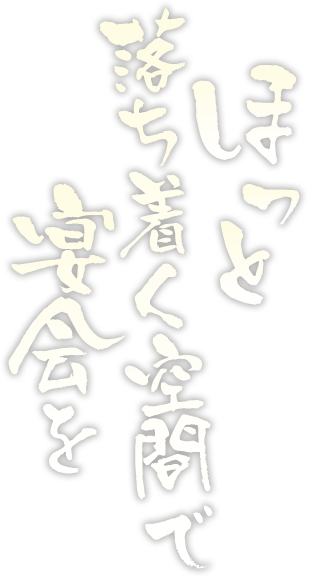 ほっと
落ち着く空間で
宴会を